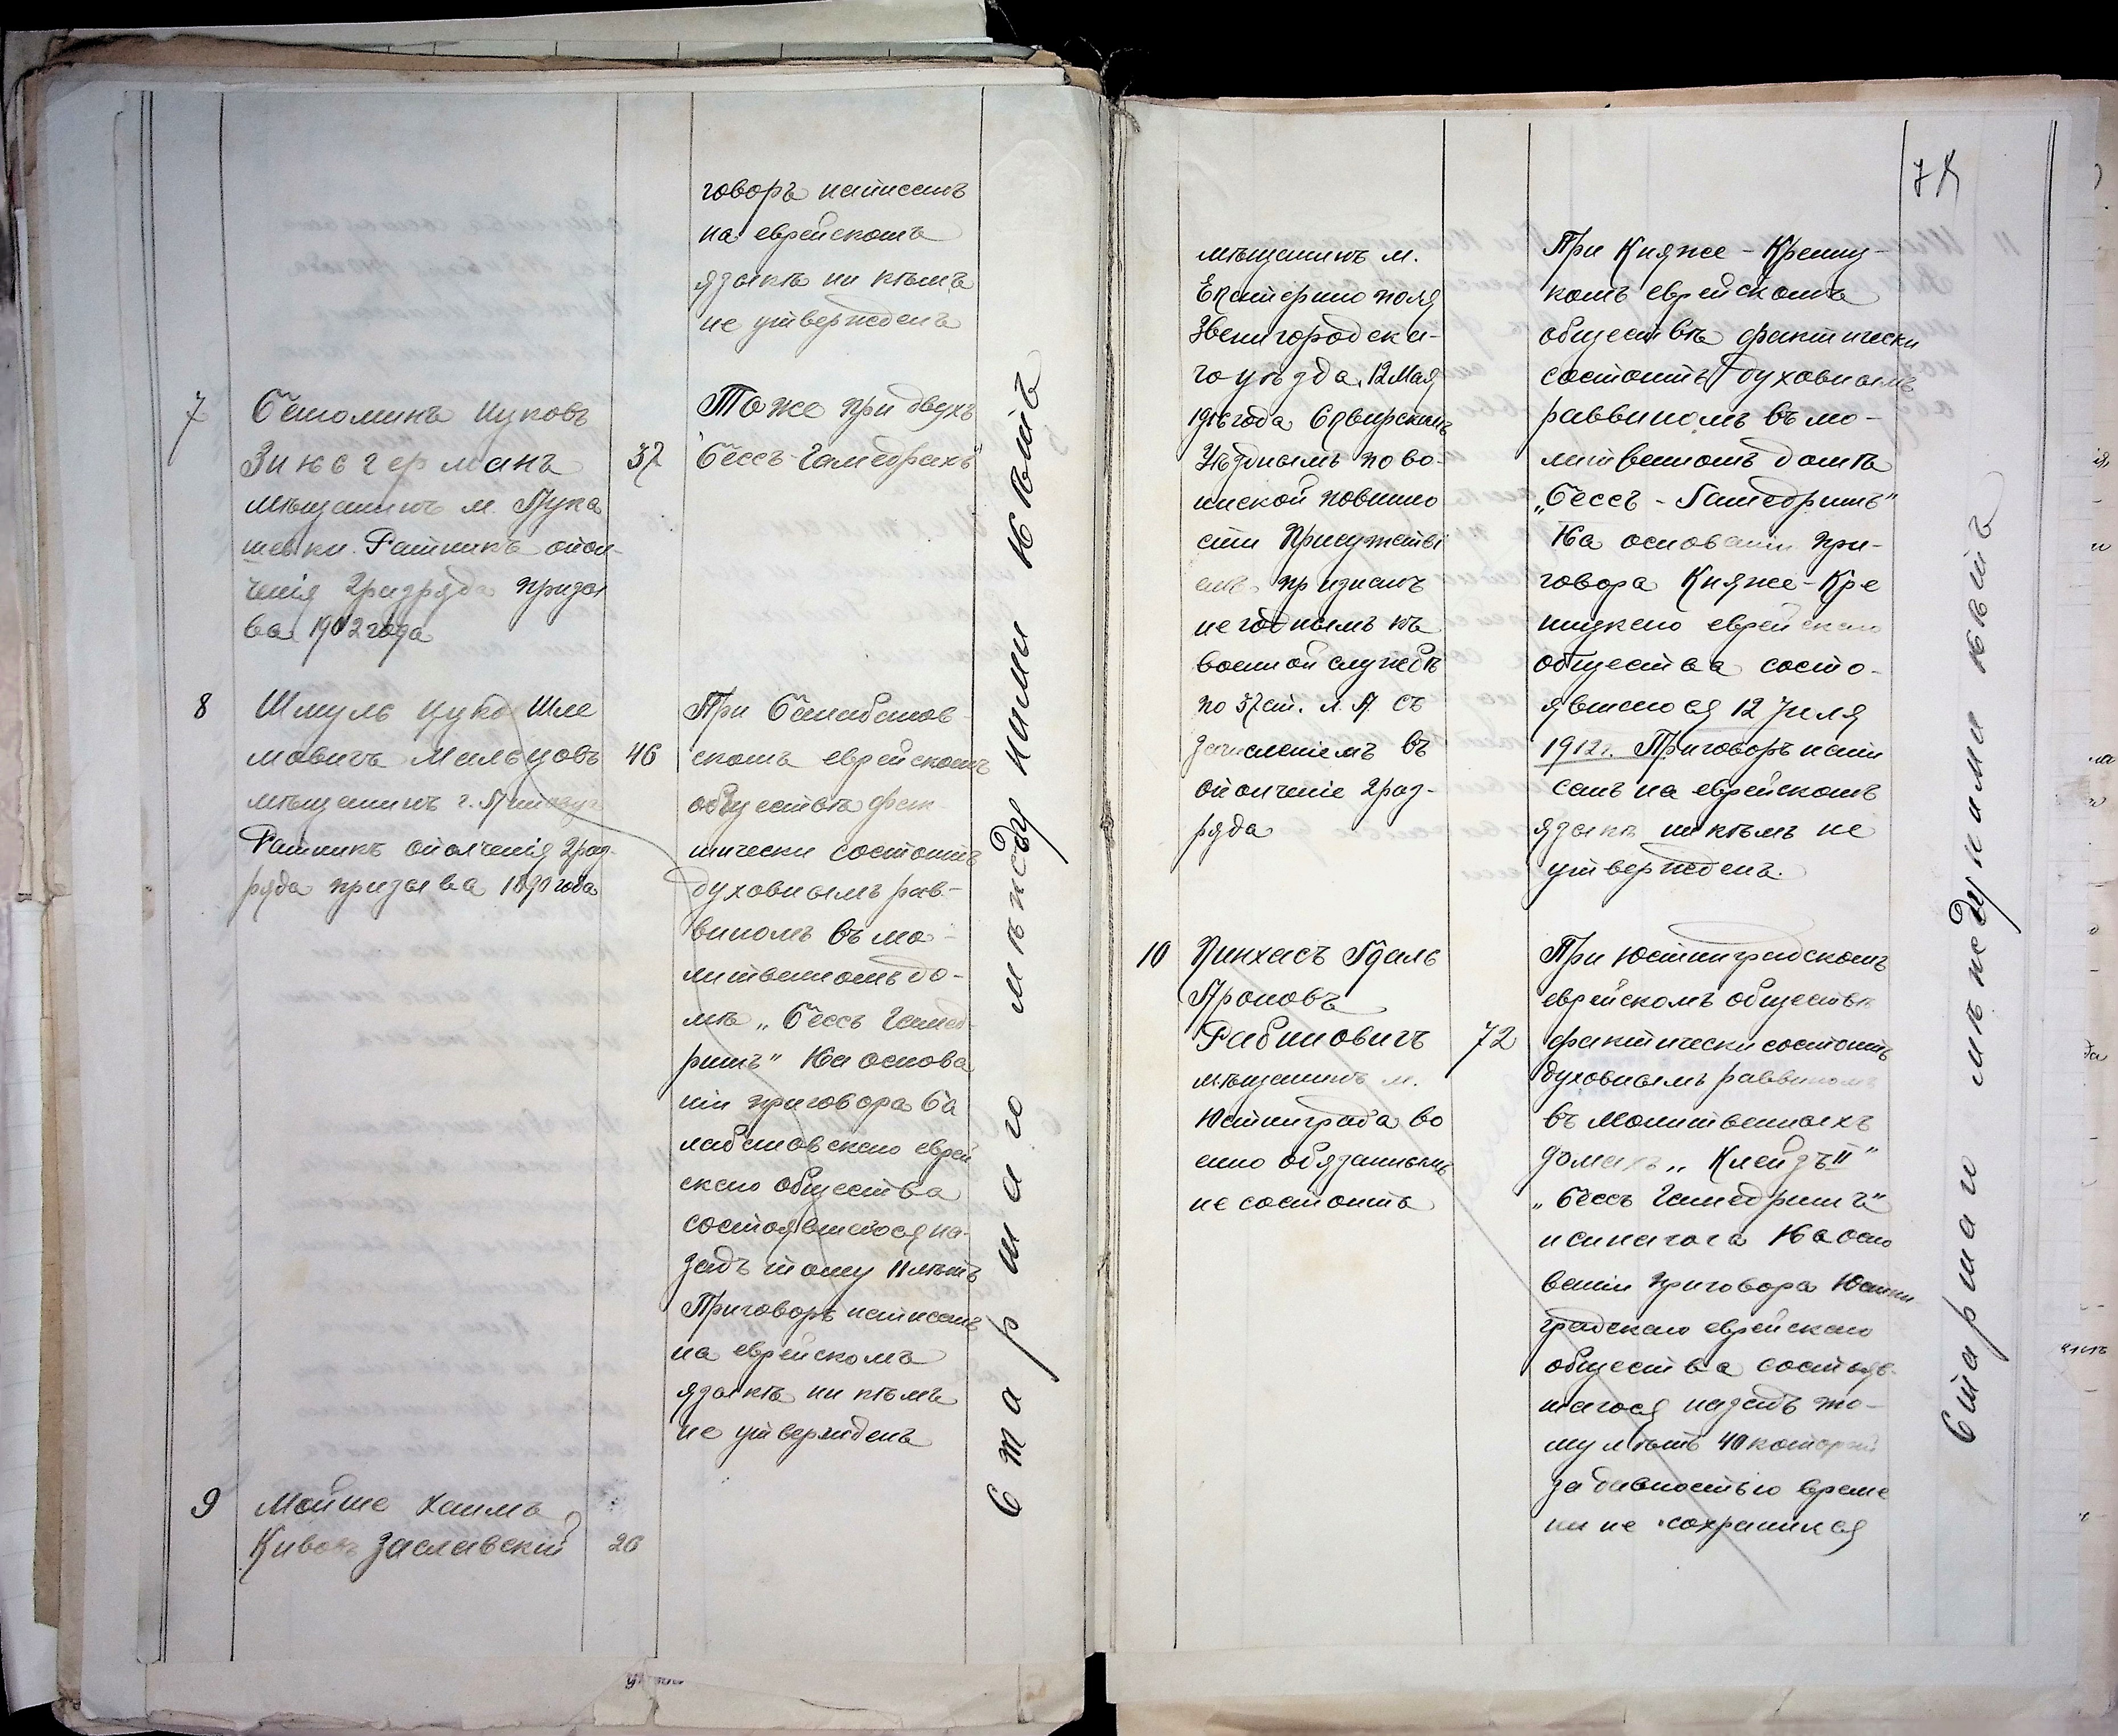 говоръ написанъ
на еврейскомъ
языкѣ ни кѣмъ
не утвержденъ
7
Соломинъ Ицковъ
Зингерманъ
мѣщанинъ м. Лука
шевки. Ратникъ опол-
ченія 2 разряда призы
ва 1902 года
37
Тоже при двухъ
"Бесъ-Гамедрахъ"
8
Шмуль Ицко Шле
мовичъ Мальцовъ
мѣщанинъ г.
Ратникъ ополченія 2 раз-
ряда призыва 1890 года
46
При Балабанов-
скомъ еврейскомъ
обществѣ фак-
тически состоитъ
духовнымъ рав-
виномъ въ мо-
литвенномъ до-
мѣ „Бесъ Гамед-
ришъ" На основа
ніи приговора Ба
лабановскаго еврей
скаго общества
состоявшегося на-
задъ тому 11 лѣтъ
Приговоръ написанъ
на еврейскомъ
языкѣ ни кѣмъ
не утвержденъ
9
Мойше Хаимъ
Кивовъ Заславскій
26
Старшаго между ними нѣтъ
мѣщанинъ м.
Екатеринополя
Звенигородска-
го уѣзда. 12 Мая
1916 года Сквирскимъ
Уѣзднымъ по во-
инской повинно
сти Присутстві
емъ признанъ
негоднымъ къ
военной службѣ
по 37 ст. л. А. съ
зачисленіемъ въ
ополченіе 2 раз-
ряда
При Княже-Крениц-
комъ еврейскомъ
обществѣ фактически
состоитъ духовнымъ
раввиномъ въ мо-
литвенномъ домѣ
„Бесъ-Гамедришъ"
На основаніи при-
говора Княже-Кре
ницкаго еврейскаго
общества состо-
явшагося 12 Іюля
1912 г. Приговоръ напи
санъ на еврейскомъ
языкѣ ни кѣмъ не
утвержденъ.
10
Пинхасъ Гдаль
Ароновъ
Рабиновичъ
мѣщанинъ м.
Юстинграда во
енно обязаннымъ
не состоитъ
72
При Юстинградскомъ
еврейскомъ обществѣ
фактически состоитъ
духовнымъ раввиномъ
въ молитвенныхъ
домахъ „Клейзъ II"
„Бесъ Гамедришъ"
и синагога На осно
ваніи приговора Юстин-
градскаго еврейскаго
общества состояв-
шагося назадъ то-
му лѣтъ 40 который
за давностью време
ни не сохранился
Старшаго между ними нѣтъ